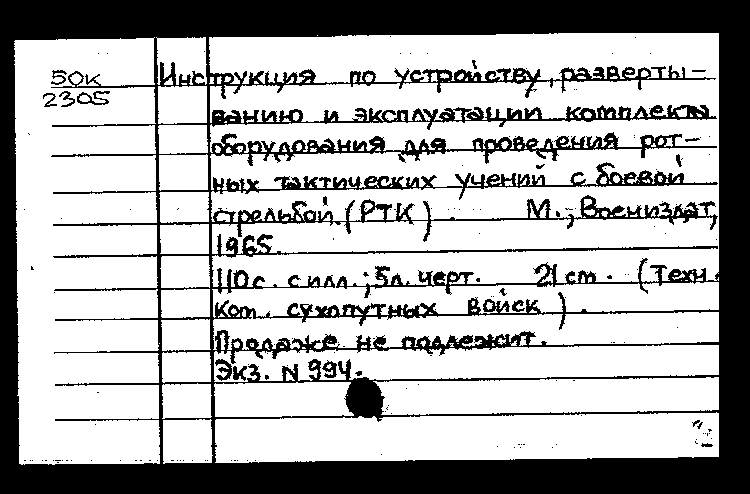 50К
2305
Инструкция по устройству, разверты-
ванию и эксплуатации комплекта
оборудования для проведения рот-
ных тактических учений с боевой
стрельбой. (РТК). М., Воениздат,
1965.
110с. с илл.; 5л. черт. 21 cm. (Техн.
Ком. сухопутных войск).
Продаже не подлежит.
Экз. N 994.